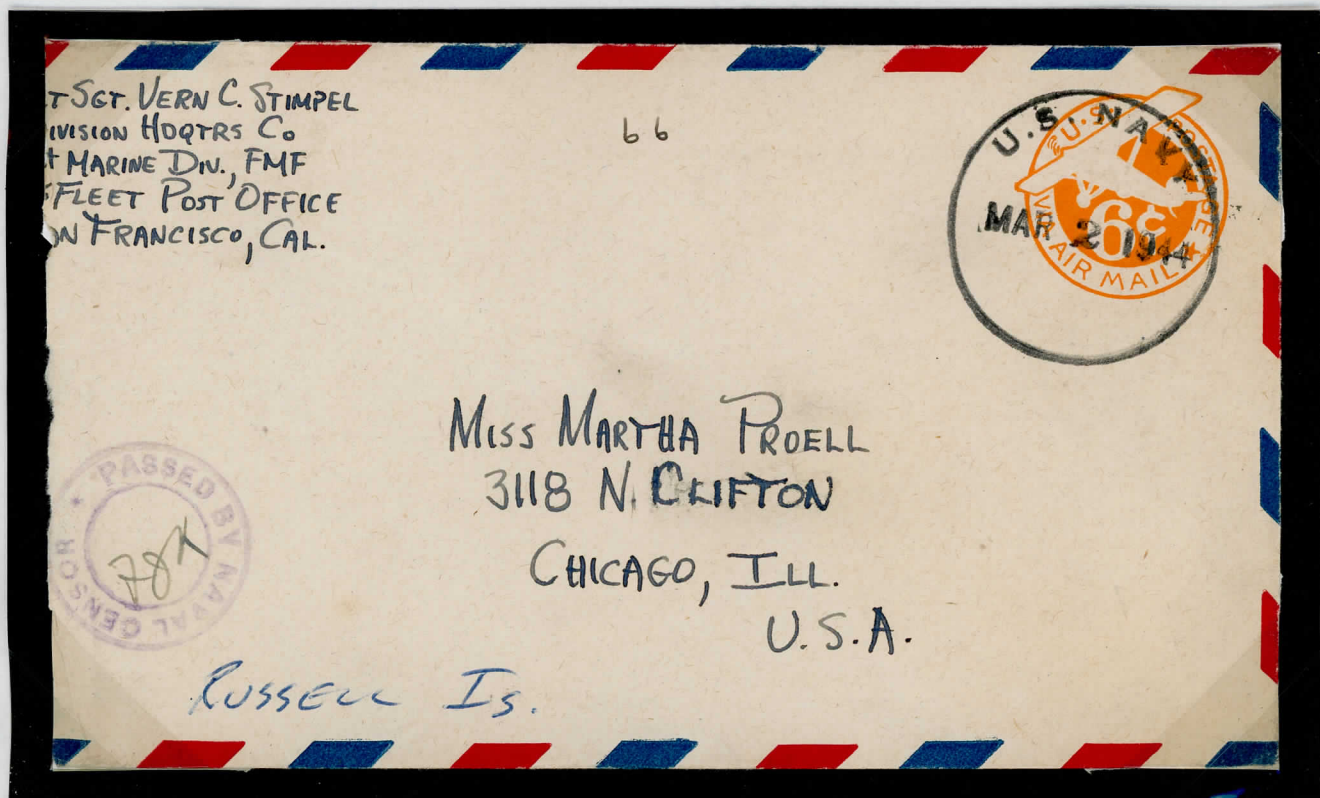 T SGT. VERN C. STIMPEL
IVISION HDQTRS CO
T MARINE DIV., FMF
FLEET POST OFFICE
N FRANCISCO, CAL.
66
U.S. NAVY
MAR 2 1944
U.S. POSTAGE
6¢
VIA AIR MAIL
MISS MARTHA PROELL
3118 N. CLIFTON
CHICAGO, ILL.
U.S.A.
PASSED BY NAVAL CENSOR
RUSSELL IS.